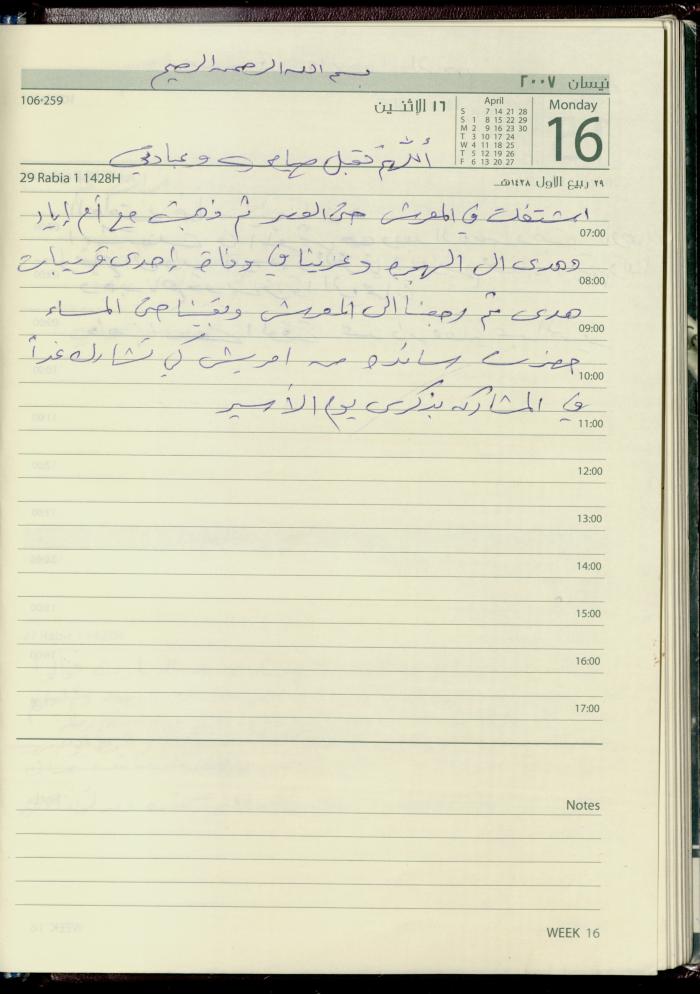 بسم الله الرحمن الرحيم
نيسان ٢٠٠٧
106-259
١٦ الاثنين
April
S 7 14 21 28
S 1 8 15 22 29
M 2 9 16 23 30
T 3 10 17 24
W 4 11 18 25
T 5 12 19 26
F 6 13 20 27
Monday
16
اللهم تقبل صيامي وعبادتي
29 Rabia 1 1428H
٢٩ ربيع الأول ١٤٢٨هـ
اشتغلت في المعرش حتى العصر ثم ذهبت مع أم إياد
07:00
وهدى الى البيره وعزينا في وفاة إحدى قريبات
08:00
هدى ثم رجعنا الى المعرش وبقينا حتى المساء
09:00
حضرت سائده من ام الريش كي تشارك غداً
10:00
في المشاركه بذكرى يوم الأسير
11:00
12:00
13:00
14:00
15:00
16:00
17:00
Notes
WEEK 16